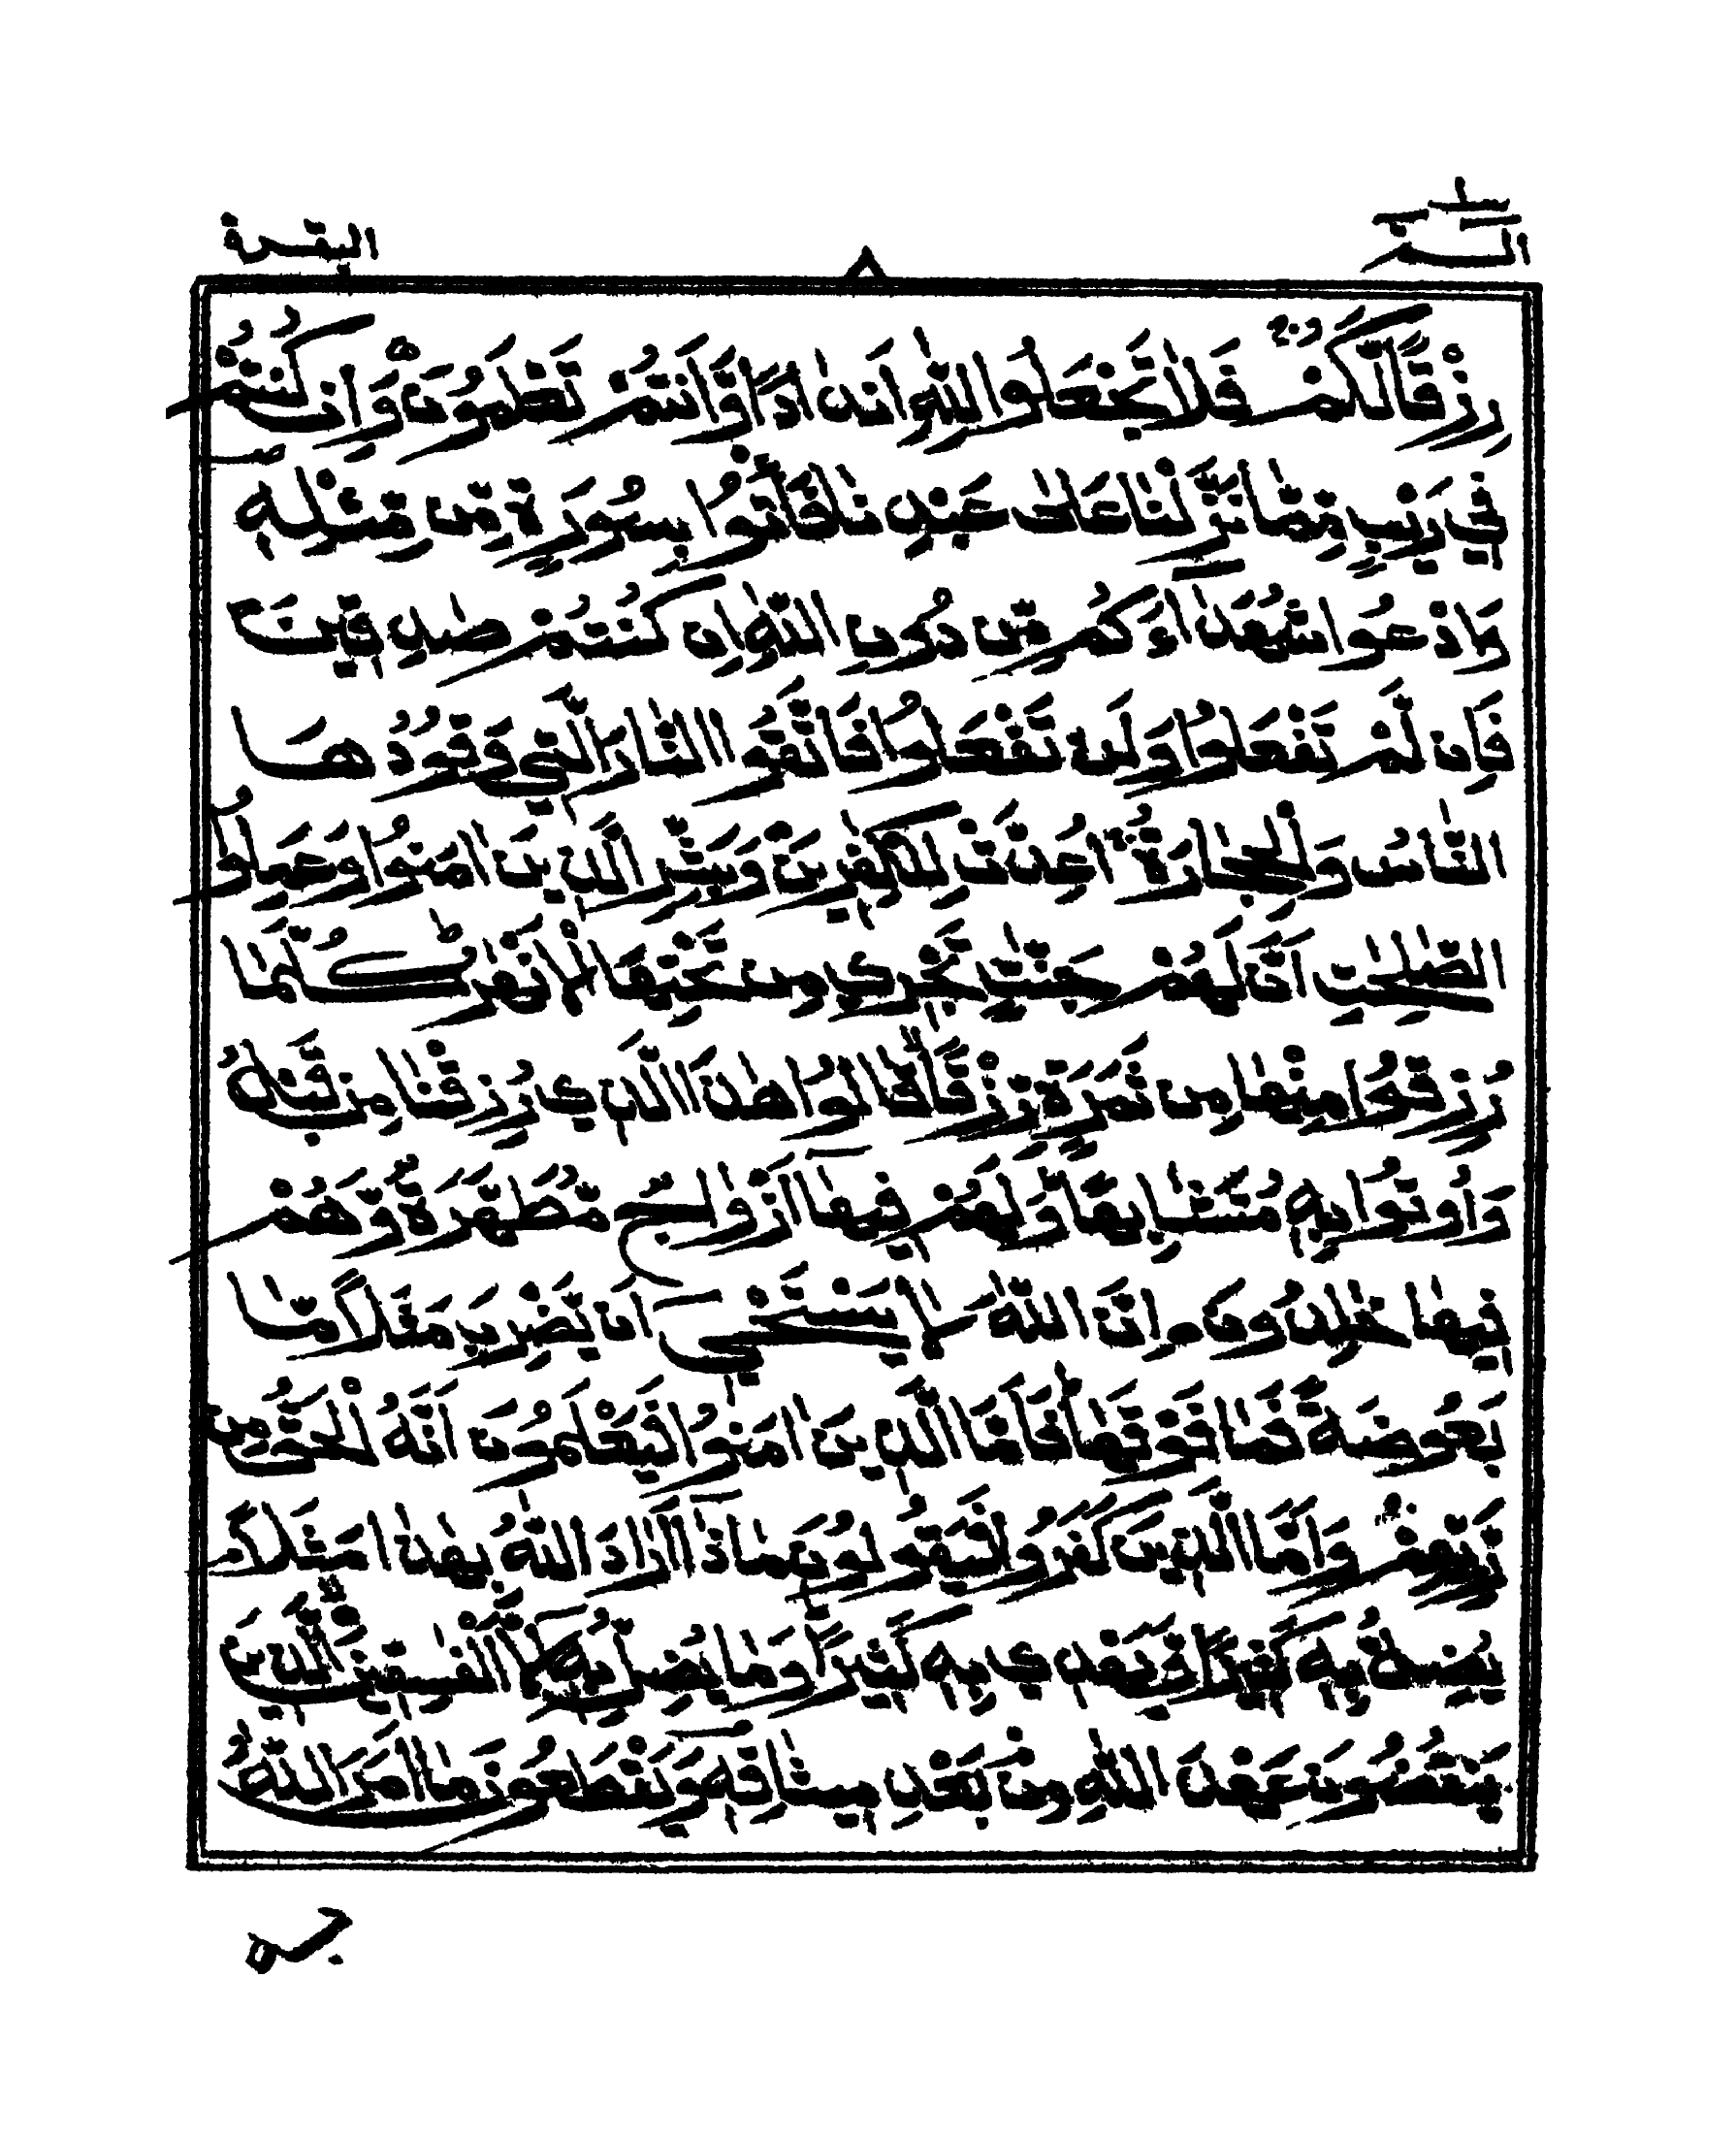 الٓمّٓ
٨
البقرة
رِزْقًا لَّكُمْ ۚ فَلَا تَجْعَلُوا لِلّٰهِ اَنْدَادًا وَّاَنْتُمْ تَعْلَمُوْنَ وَاِنْ كُنْتُمْ
فِيْ رَيْبٍ مِّمَّا نَزَّلْنَا عَلٰى عَبْدِنَا فَأْتُوْا بِسُوْرَةٍ مِّنْ مِّثْلِهٖ
وَادْعُوْا شُهَدَآءَكُمْ مِّنْ دُوْنِ اللّٰهِ اِنْ كُنْتُمْ صٰدِقِيْنَ
فَاِنْ لَّمْ تَفْعَلُوْا وَلَنْ تَفْعَلُوْا فَاتَّقُوا النَّارَ الَّتِيْ وَقُوْدُهَا
النَّاسُ وَالْحِجَارَةُ ۚ اُعِدَّتْ لِلْكٰفِرِيْنَ وَبَشِّرِ الَّذِيْنَ اٰمَنُوْا وَعَمِلُوا
الصّٰلِحٰتِ اَنَّ لَهُمْ جَنّٰتٍ تَجْرِيْ مِنْ تَحْتِهَا الْاَنْهٰرُ ؕ كُلَّمَا
رُزِقُوْا مِنْهَا مِنْ ثَمَرَةٍ رِّزْقًا قَالُوْا هٰذَا الَّذِيْ رُزِقْنَا مِنْ قَبْلُ
وَاُتُوْا بِهٖ مُتَشَابِهًا ؕ وَلَهُمْ فِيْهَآ اَزْوَاجٌ مُّطَهَّرَةٌ وَّهُمْ
فِيْهَا خٰلِدُوْنَ اِنَّ اللّٰهَ لَا يَسْتَحْيٖٓ اَنْ يَّضْرِبَ مَثَلًا مَّا
بَعُوْضَةً فَمَا فَوْقَهَا ؕ فَاَمَّا الَّذِيْنَ اٰمَنُوْا فَيَعْلَمُوْنَ اَنَّهُ الْحَقُّ مِنْ
رَّبِّهِمْ ۚ وَاَمَّا الَّذِيْنَ كَفَرُوْا فَيَقُوْلُوْنَ مَاذَآ اَرَادَ اللّٰهُ بِهٰذَا مَثَلًا ۘ
يُضِلُّ بِهٖ كَثِيْرًا وَّيَهْدِيْ بِهٖ كَثِيْرًا ؕ وَمَا يُضِلُّ بِهٖٓ اِلَّا الْفٰسِقِيْنَ الَّذِيْنَ
يَنْقُضُوْنَ عَهْدَ اللّٰهِ مِنْ بَعْدِ مِيْثَاقِهٖ وَيَقْطَعُوْنَ مَآ اَمَرَ اللّٰهُ
بِهٖ